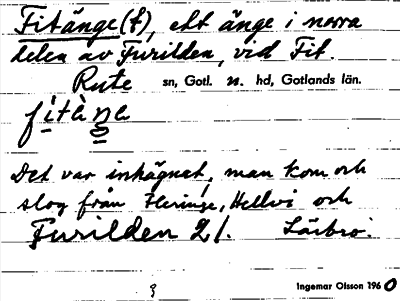 Fitänge(t), ett änge i norra
delen av Furilden, vid Fit.
Rute sn, Gotl. n. hd, Gotlands län.
fitäŋe
Det var inhägnat, man kom och
slog från Fleringe, Hellvi och
Furilden 21. Lärbro.
Ingemar Olsson 1960